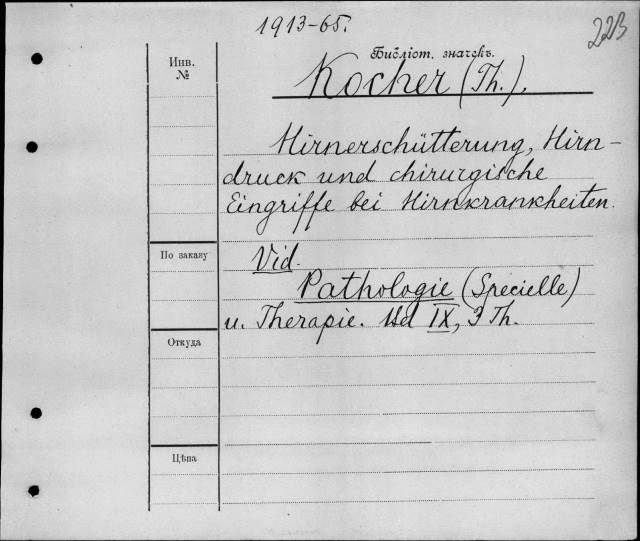 1913-65.
223
Библіот. значекъ.
Инв.
№
Kocher (Th.),
Hirnerschütterung, Hirn-
druck und chirurgische
Eingriffe bei Hirnkrankheiten.
По заказу
Vid.
Pathologie (Specielle)
u. Therapie. Bd IX, 3 Th.
Откуда
Цѣна